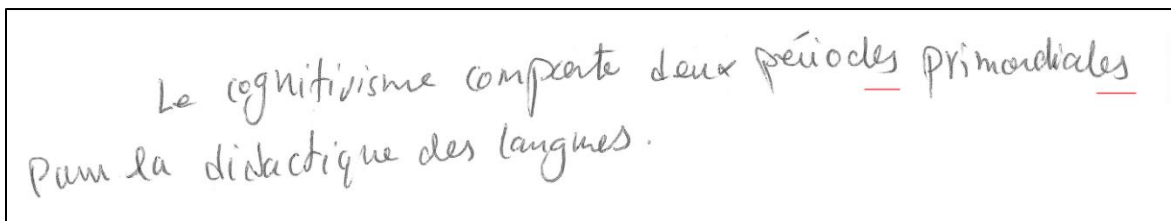 Le cognitivisme comporte deux périodes primordiales
pour la didactique des langues.